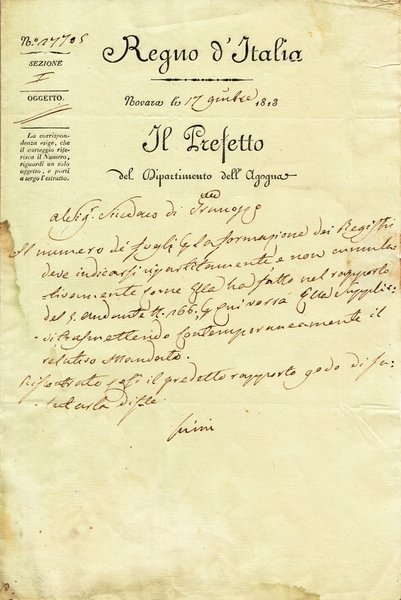 N.º 17705
SEZIONE
I
OGGETTO.
La corrispon-
denza esige, che
il carteggio rife-
risca il Numero,
riguardi un solo
oggetto, e porti
a tergo l'estratto.
Regno d'Italia
Novara li 17 1813
Il Prefetto
del Dipartimento dell'Agogna
Al Sig.r Sindaco di
Il numero de' fogli la formazione dei Registri
deve indicarsi ripartitamente e non cumula-
tivamente come Ella ha fatto nel rapporto
del 5. andante N. 166, qui versa Ella suppli-
trasmettendo contemporaneamente il
relativo mandato.
Riscontrato così il predetto rapporto godo di sa-
lutarla